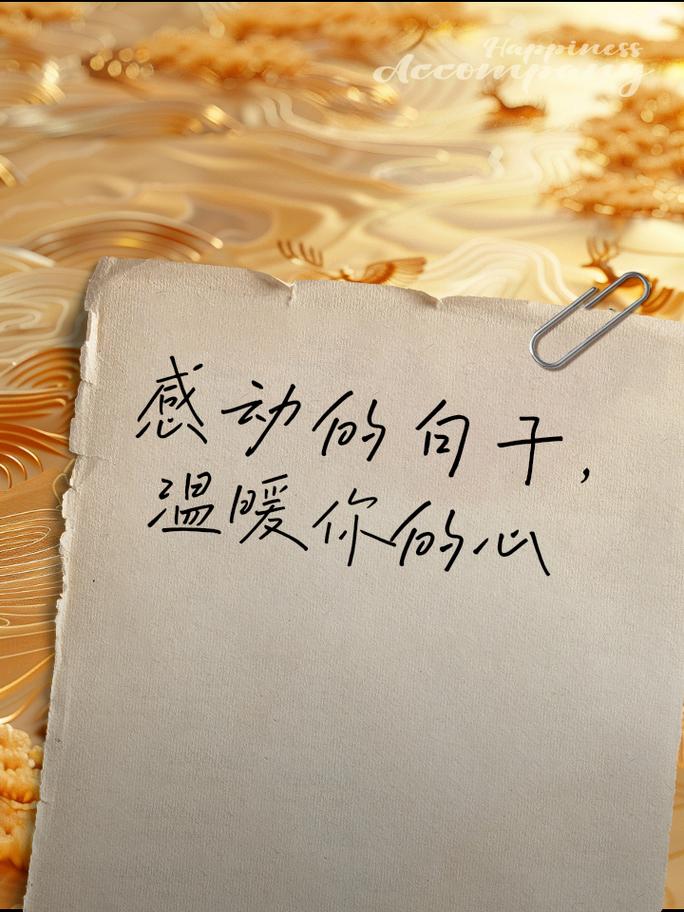 Happiness
Accompany
感动的句子，
温暖你的心